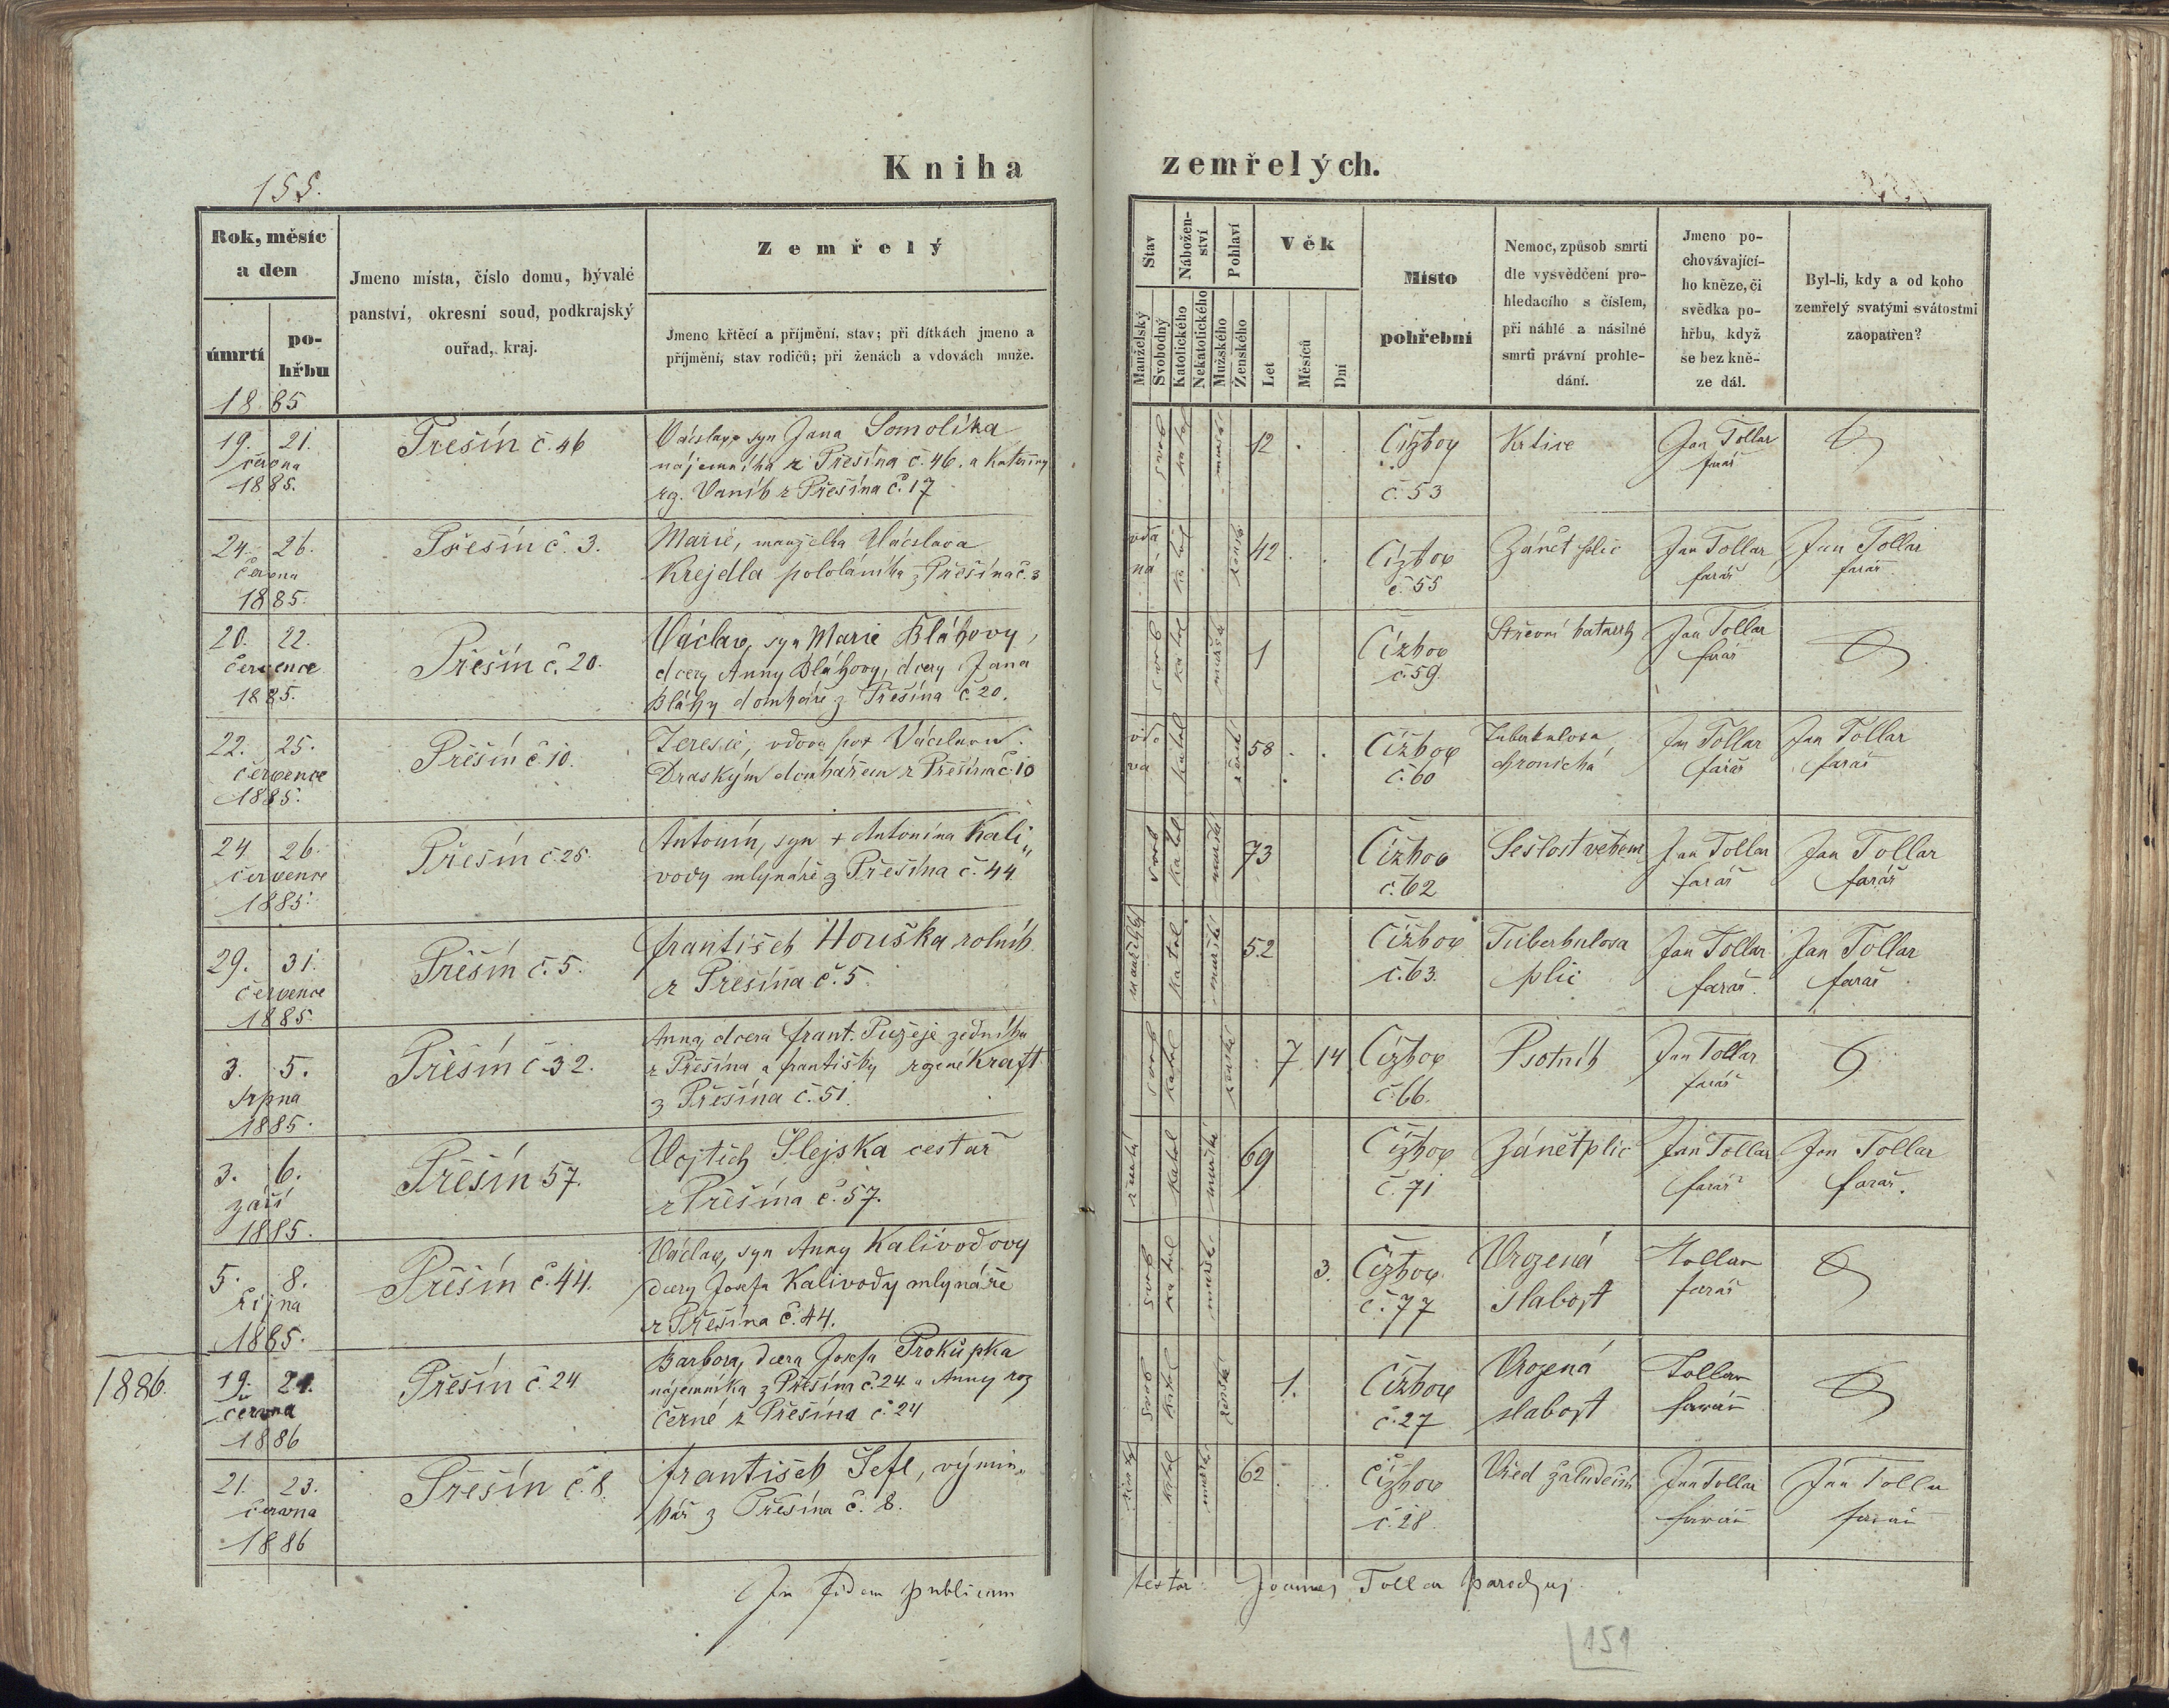 Kniha zemřelých.
155.
Rok, měsíc a den
úmrtí
po-
hřbu
Jmeno místa, číslo domu, bývalé
panství, okresní soud, podkrajský
ouřad, kraj.
Zemřelý
Jmeno křtěcí a příjmění, stav; při dítkách jmeno a
příjmění, stav rodičů; při ženách a vdovách muže.
Stav
Manželský
Svobodný
Nábožen-
ství
Katolického
Nekatolického
Pohlaví
Mužského
Ženského
Věk
Let
Měsíců
Dní
Místo
pohřební
Nemoc, způsob smrti
dle vysvědčení pro-
hledacího s číslem,
při náhlé a násilné
smrti právní prohle-
dání.
Jmeno po-
chovávající-
ho kněze, či
svědka po-
hřbu, když
se bez kně-
ze dál.
Byl-li, kdy a od koho
zemřelý svatými svátostmi
zaopatřen?
1885
19. 21.
června
1885.
Přešín č. 46
Václav syn Jana Somolíka
nájemníka z Přešína č. 46. a Kateřiny
rg. Vaník z Přešína č. 17
svob katol mužské 12
Čížkov
č. 53
Krtice
Jan Tollar
farář
24. 26.
června
1885.
Přešín č. 3.
Marie, manželka Václava
Krejdla pololáníka z Přešína č. 3
vda
ná
katol žensk 42
Čížkov
č. 55
Zánět plic
Jan Tollar
farář
Jan Tollar
farář
20. 22.
července
1885.
Přešín č. 20.
Václav, syn Marie Bláhovy,
dcery Anny Bláhovy, dcery Jana
Bláhy domkáře z Přešína č. 20.
svob katol mužské 1
Čížkov
č. 59
Střevní katarrh
Jan Tollar
farář
22. 25.
července
1885.
Přešín č. 10.
Teresie, vdova po + Václavu
Draským domkářem z Přešína č. 10
vdo
va
katol ženské 58
Čížkov
č. 60
Tuberkulosa
chronická
Jan Tollar
farář
Jan Tollar
farář
24. 26.
července
1885.
Přešín č. 25.
Antonín, syn + Antonína Kali„
vody mlynáře z Přešína č. 44
svob katol mužské 73
Čížkov
č. 62
Sešlost věkem
Jan Tollar
farář
Jan Tollar
farář
29. 31.
července
1885.
Přešín č. 5.
František Houška rolník
z Přešína č. 5.
manželský katol mužské 52
Čížkov
č. 63.
Tuberkulosa
plic
Jan Tollar
farář
Jan Tollar
farář
3. 5.
srpna
1885.
Přešín č. 32.
Anna, dcera Frant. Pužeje zedníka
z Přešína a Františky rozené Kraft
z Přešína č. 51.
svob katol ženské 7 14
Čížkov
č. 66.
Psotník
Jan Tollar
farář
3. 6.
září
1885.
Přešín 57.
Vojtěch Šlejska cestář
z Přešína č. 57.
katol mužské 69
Čížkov
č. 71
Zánět plic
Jan Tollar
farář
Jan Tollar
farář.
5. 8.
října
1885.
Přešín č. 44.
Václav, syn Anny Kalivodovy
dcery Josefa Kalivody mlynáře
z Přešína č. 44.
svob katol mužské 3.
Čížkov
č. 77
Vrozená
slabost
Tollar
farář
1886.
19. 21.
června
1886
Přešín č. 24
Barbora, dcera Josefa Prokůpka
nájemníka z Přešína č. 24 a Anny roz
Černé z Přešína č. 24
svob katol ženské 1.
Čížkov
č. 27
Vrozená
slabost
Tollar
farář
21. 23.
června
1886
Přešín č. 8.
František Šefl, výmin„
kář z Přešína č. 8.
katol mužské 62
Čížkov
č. 28.
Vřed žaludeční
Jan Tollar
farář
Jan Tollar
farář
In fidem publicam testor: Joannes Tollar parochus.
151